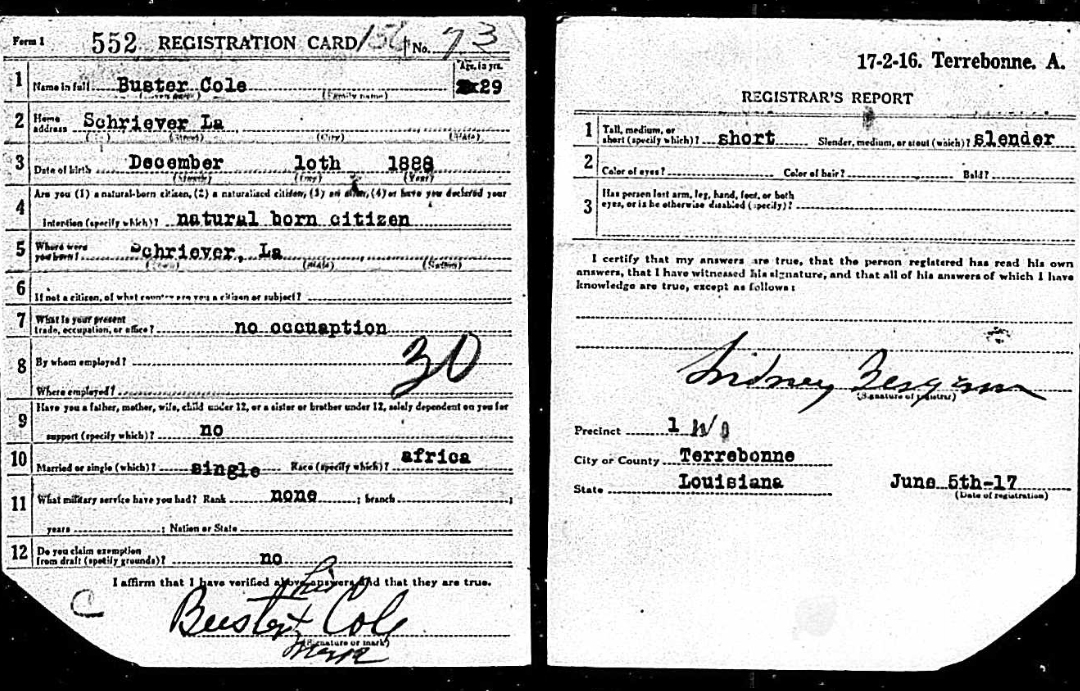 Form 1 552 REGISTRATION CARD No. 73
1 Name in full Buster Cole Age, in yrs. 29
(Given name) (Family name)
2 Home address Schriever La
(No.) (Street) (City) (State)
3 Date of birth December 10th 1888
(Month) (Day) (Year)
4 Are you (1) a natural-born citizen, (2) a naturalized citizen, (3) an alien, (4) or have you declared your
intention (specify which)? natural born citizen
5 Where were you born? Schriever, La
(Town) (State) (Nation)
6 If not a citizen, of what country are you a citizen or subject?
7 What is your present trade, occupation, or office? no occuaption
8 By whom employed? 30
Where employed?
9 Have you a father, mother, wife, child under 12, or a sister or brother under 12, solely dependent on you for
support (specify which)? no
10 Married or single (which)? single Race (specify which)? africa
11 What military service have you had? Rank none ; branch ;
years ; Nation or State
12 Do you claim exemption from draft (specify grounds)? no
I affirm that I have verified above answers and that they are true.
C
his
Buster x Cole
(Signature or mark)
mark
17-2-16. Terrebonne. A.
REGISTRAR'S REPORT
1 Tall, medium, or short (specify which)? short Slender, medium, or stout (which)? slender
2 Color of eyes? Color of hair? Bald?
3 Has person lost arm, leg, hand, foot, or both
eyes, or is he otherwise disabled (specify)?
I certify that my answers are true, that the person registered has read his own
answers, that I have witnessed his signature, and that all of his answers of which I have
knowledge are true, except as follows:
Sidney
(Signature of registrar)
Precinct 1
City or County Terrebonne
State Louisiana June 5th-17
(Date of registration)